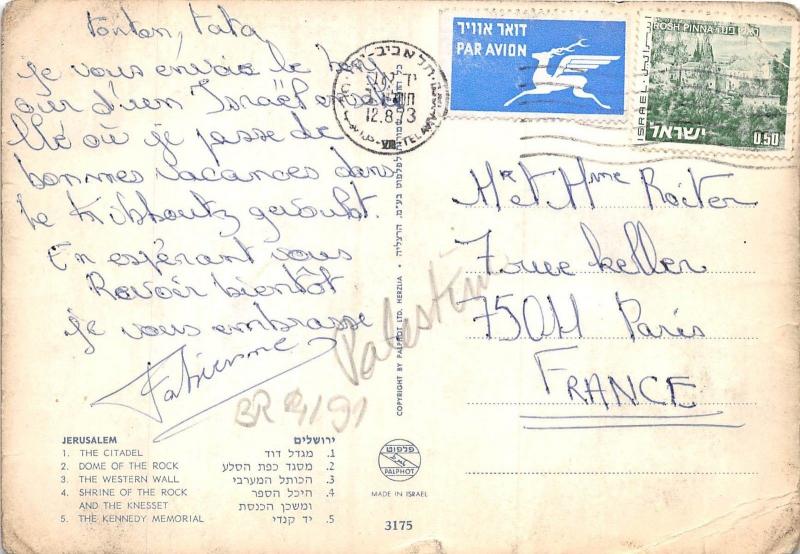 tonton, tata
je vous envoie le bon
jour d'un Israël ensole
llé où je passe de
bonnes vacances dans
le Kibboutz
En espérant vous
Revoir bientôt
je vous embrasse
Fabienne
Palestine
BR 4/91
JERUSALEM
1. THE CITADEL
2. DOME OF THE ROCK
3. THE WESTERN WALL
4. SHRINE OF THE ROCK
AND THE KNESSET
5. THE KENNEDY MEMORIAL
ירושלים
1. מגדל דוד
2. מסגד כפת הסלע
3. הכותל המערבי
4. היכל הספר
ומשכן הכנסת
5. יד קנדי
COPYRIGHT BY PALPHOT LTD. HERZLIA • כל הזכויות שמורות לפלפוט בע״מ. הרצליה
פלפוט
PALPHOT
MADE IN ISRAEL
3175
תל אביב-יפו
12.8.73
TEL AVIV
דואר אוויר
PAR AVION
ROSH PINNA ראש פנה
ISRAEL اسرائيل
ישראל
0.50
Mr et Mme Roiter
7 rue Keller
75011 Paris
FRANCE